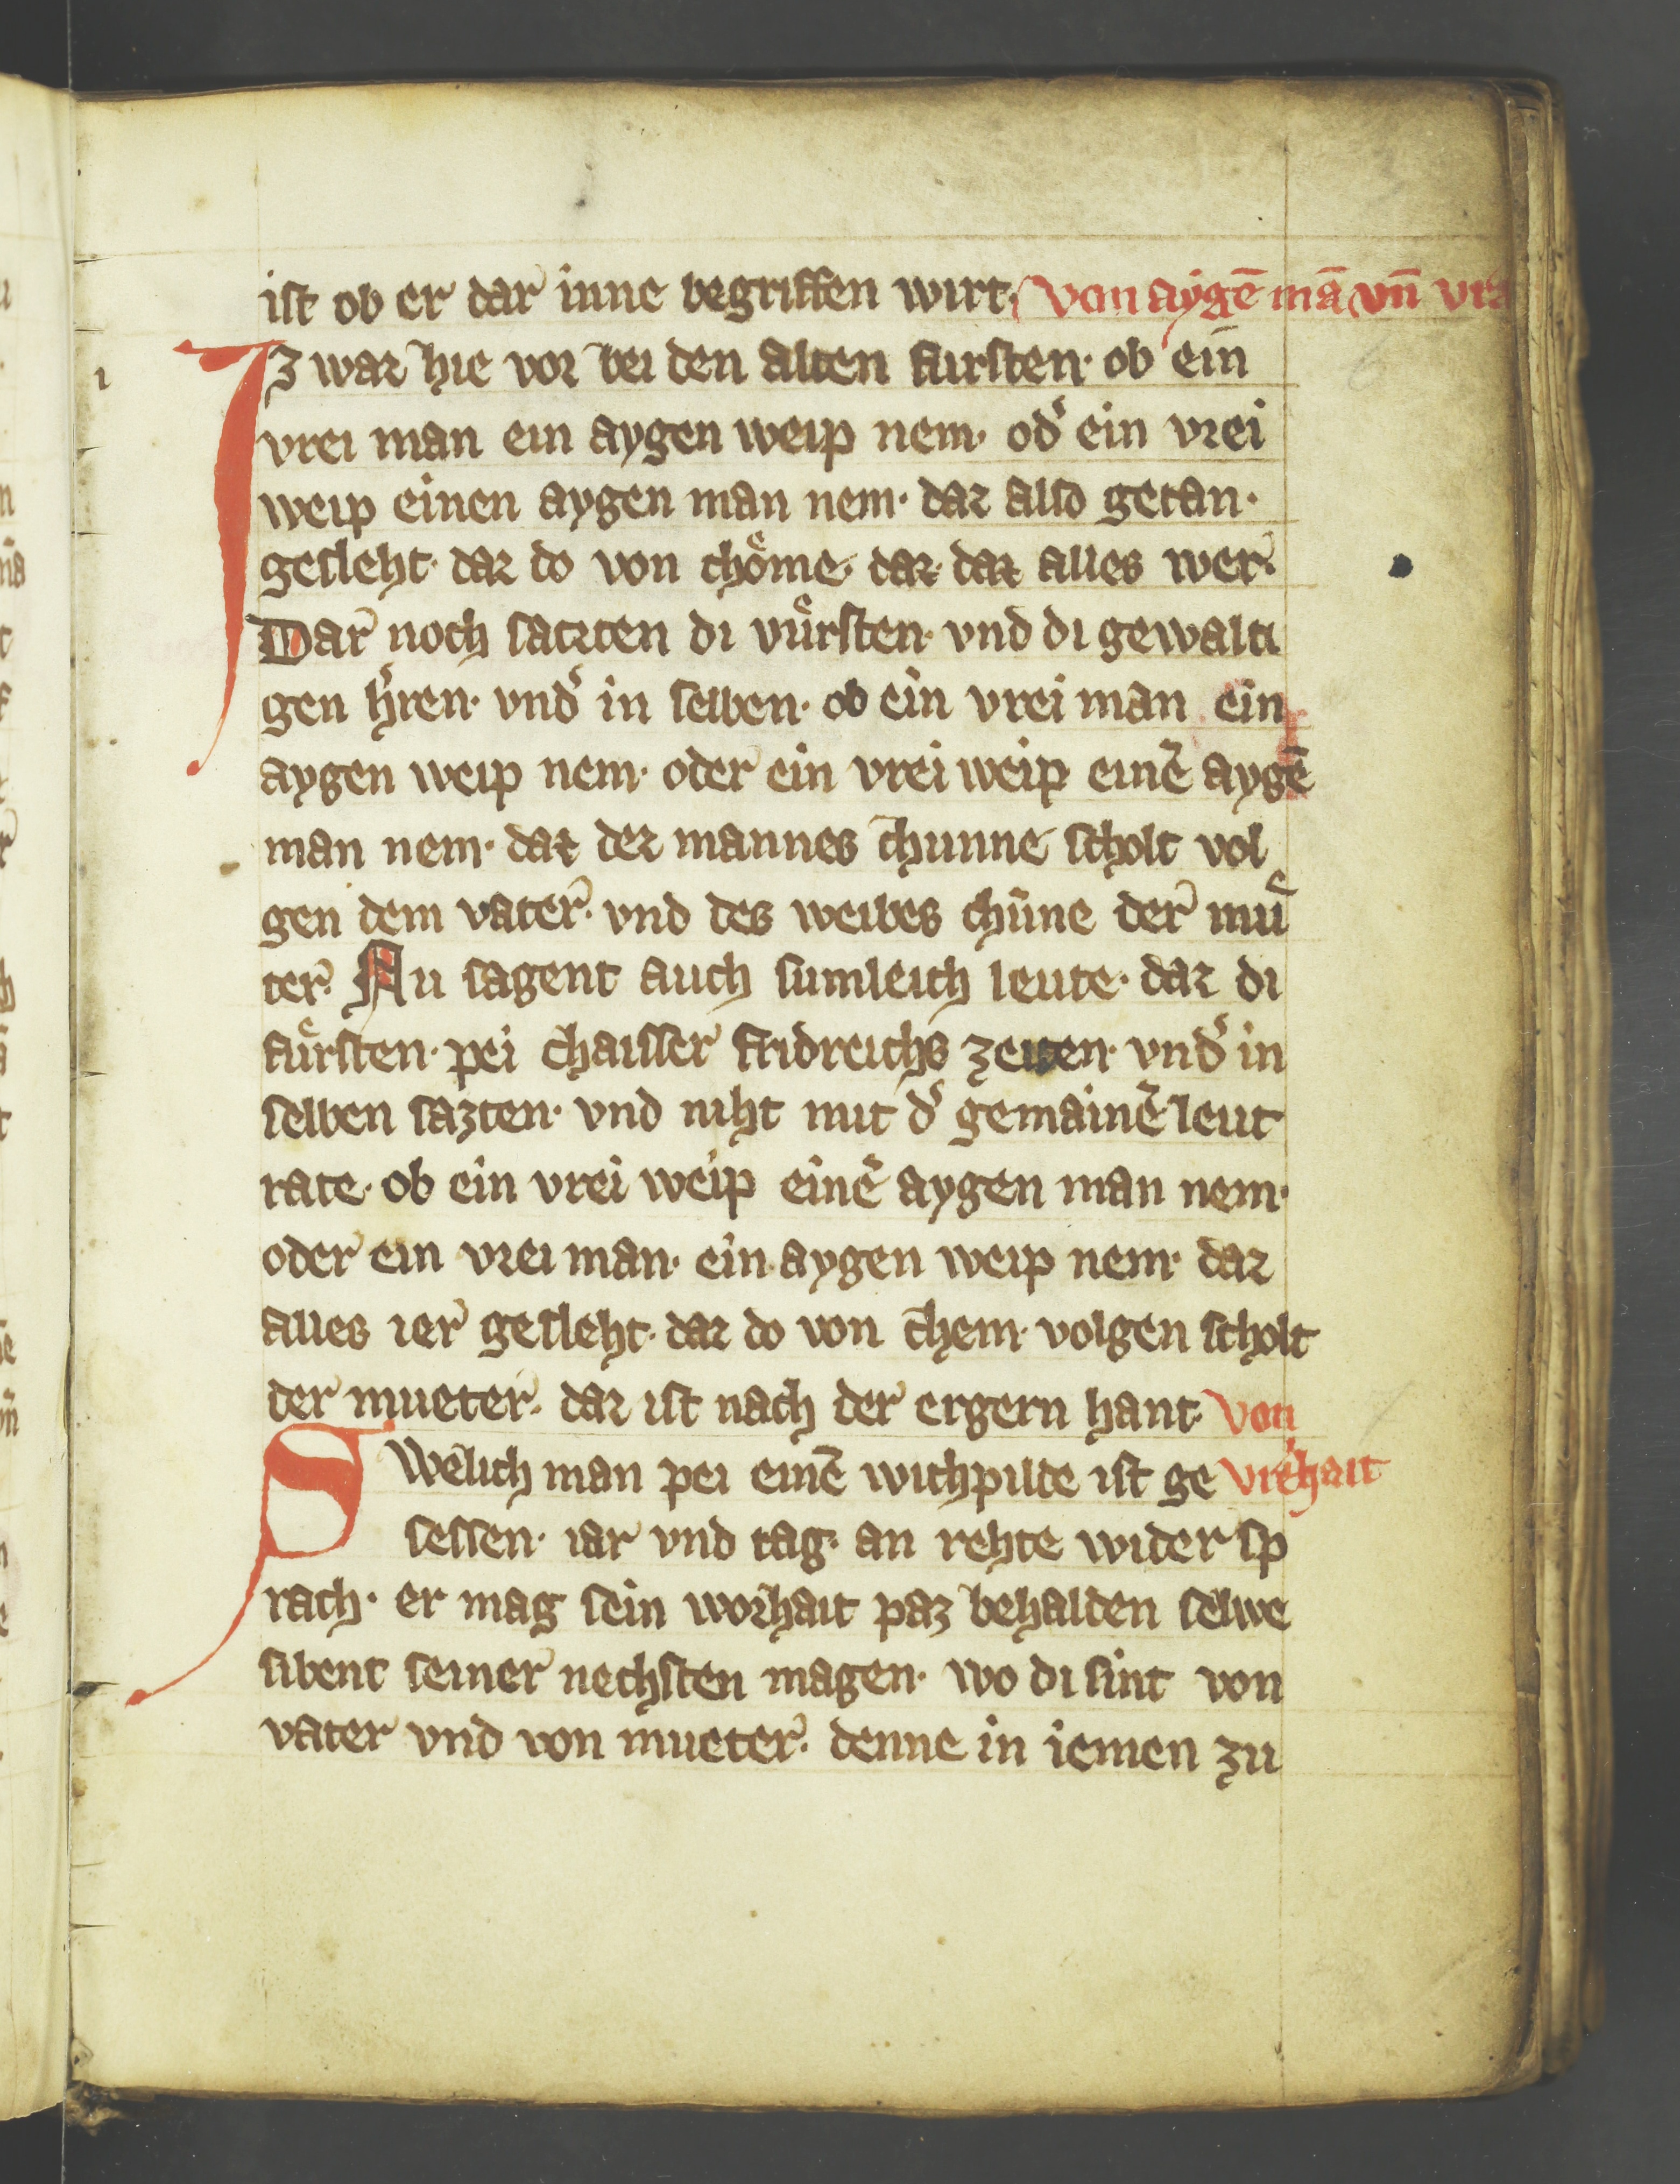 ist ob er dar inne begriffen wirt. von aygē mā vn̄ vra
Iz waꝛ hie voꝛ bei den alten fursten· ob ein
vrei man ein aygen weip nem· od͛ ein vrei
weip einen aygen man nem· daz also getan·
gesleht· daz do von choͤme· daz daz alles wer·
Dar noch satzten di vuͤrsten· vnd di gewalti
gen h͛ren· vnd͛ in selben· ob ein vrei man ein
aygen weip nem· oder ein vrei weip einē aygē
man nem· daz dez mannes chunne scholt vol
gen dem vater· vnd des weibes chūne der muͤ
ter· Nu sagent auch sumleich leute· daz di
fuͤrsten· pei chaisser fridreichs zeiten· vnd͛ in
selben sazten· vnd niht mit d͛ gemainē leut
rate· ob ein vrei weip einē aygen man nem·
oder ein vrei man· ein aygen weip nem· daz
alles ier gesleht· daz do von chem· volgen scholt
der mueter· daz ist nach der ergern hant· von
Swelich man pei einē wichpilde ist ge vreihait
sessen· iar vnd tag· an rehte wider sp
rach· er mag sein worhait paz behalden selwe
sibent seiner nechsten magen· wo di sint von
vater vnd von mueter· denne in iemen zu